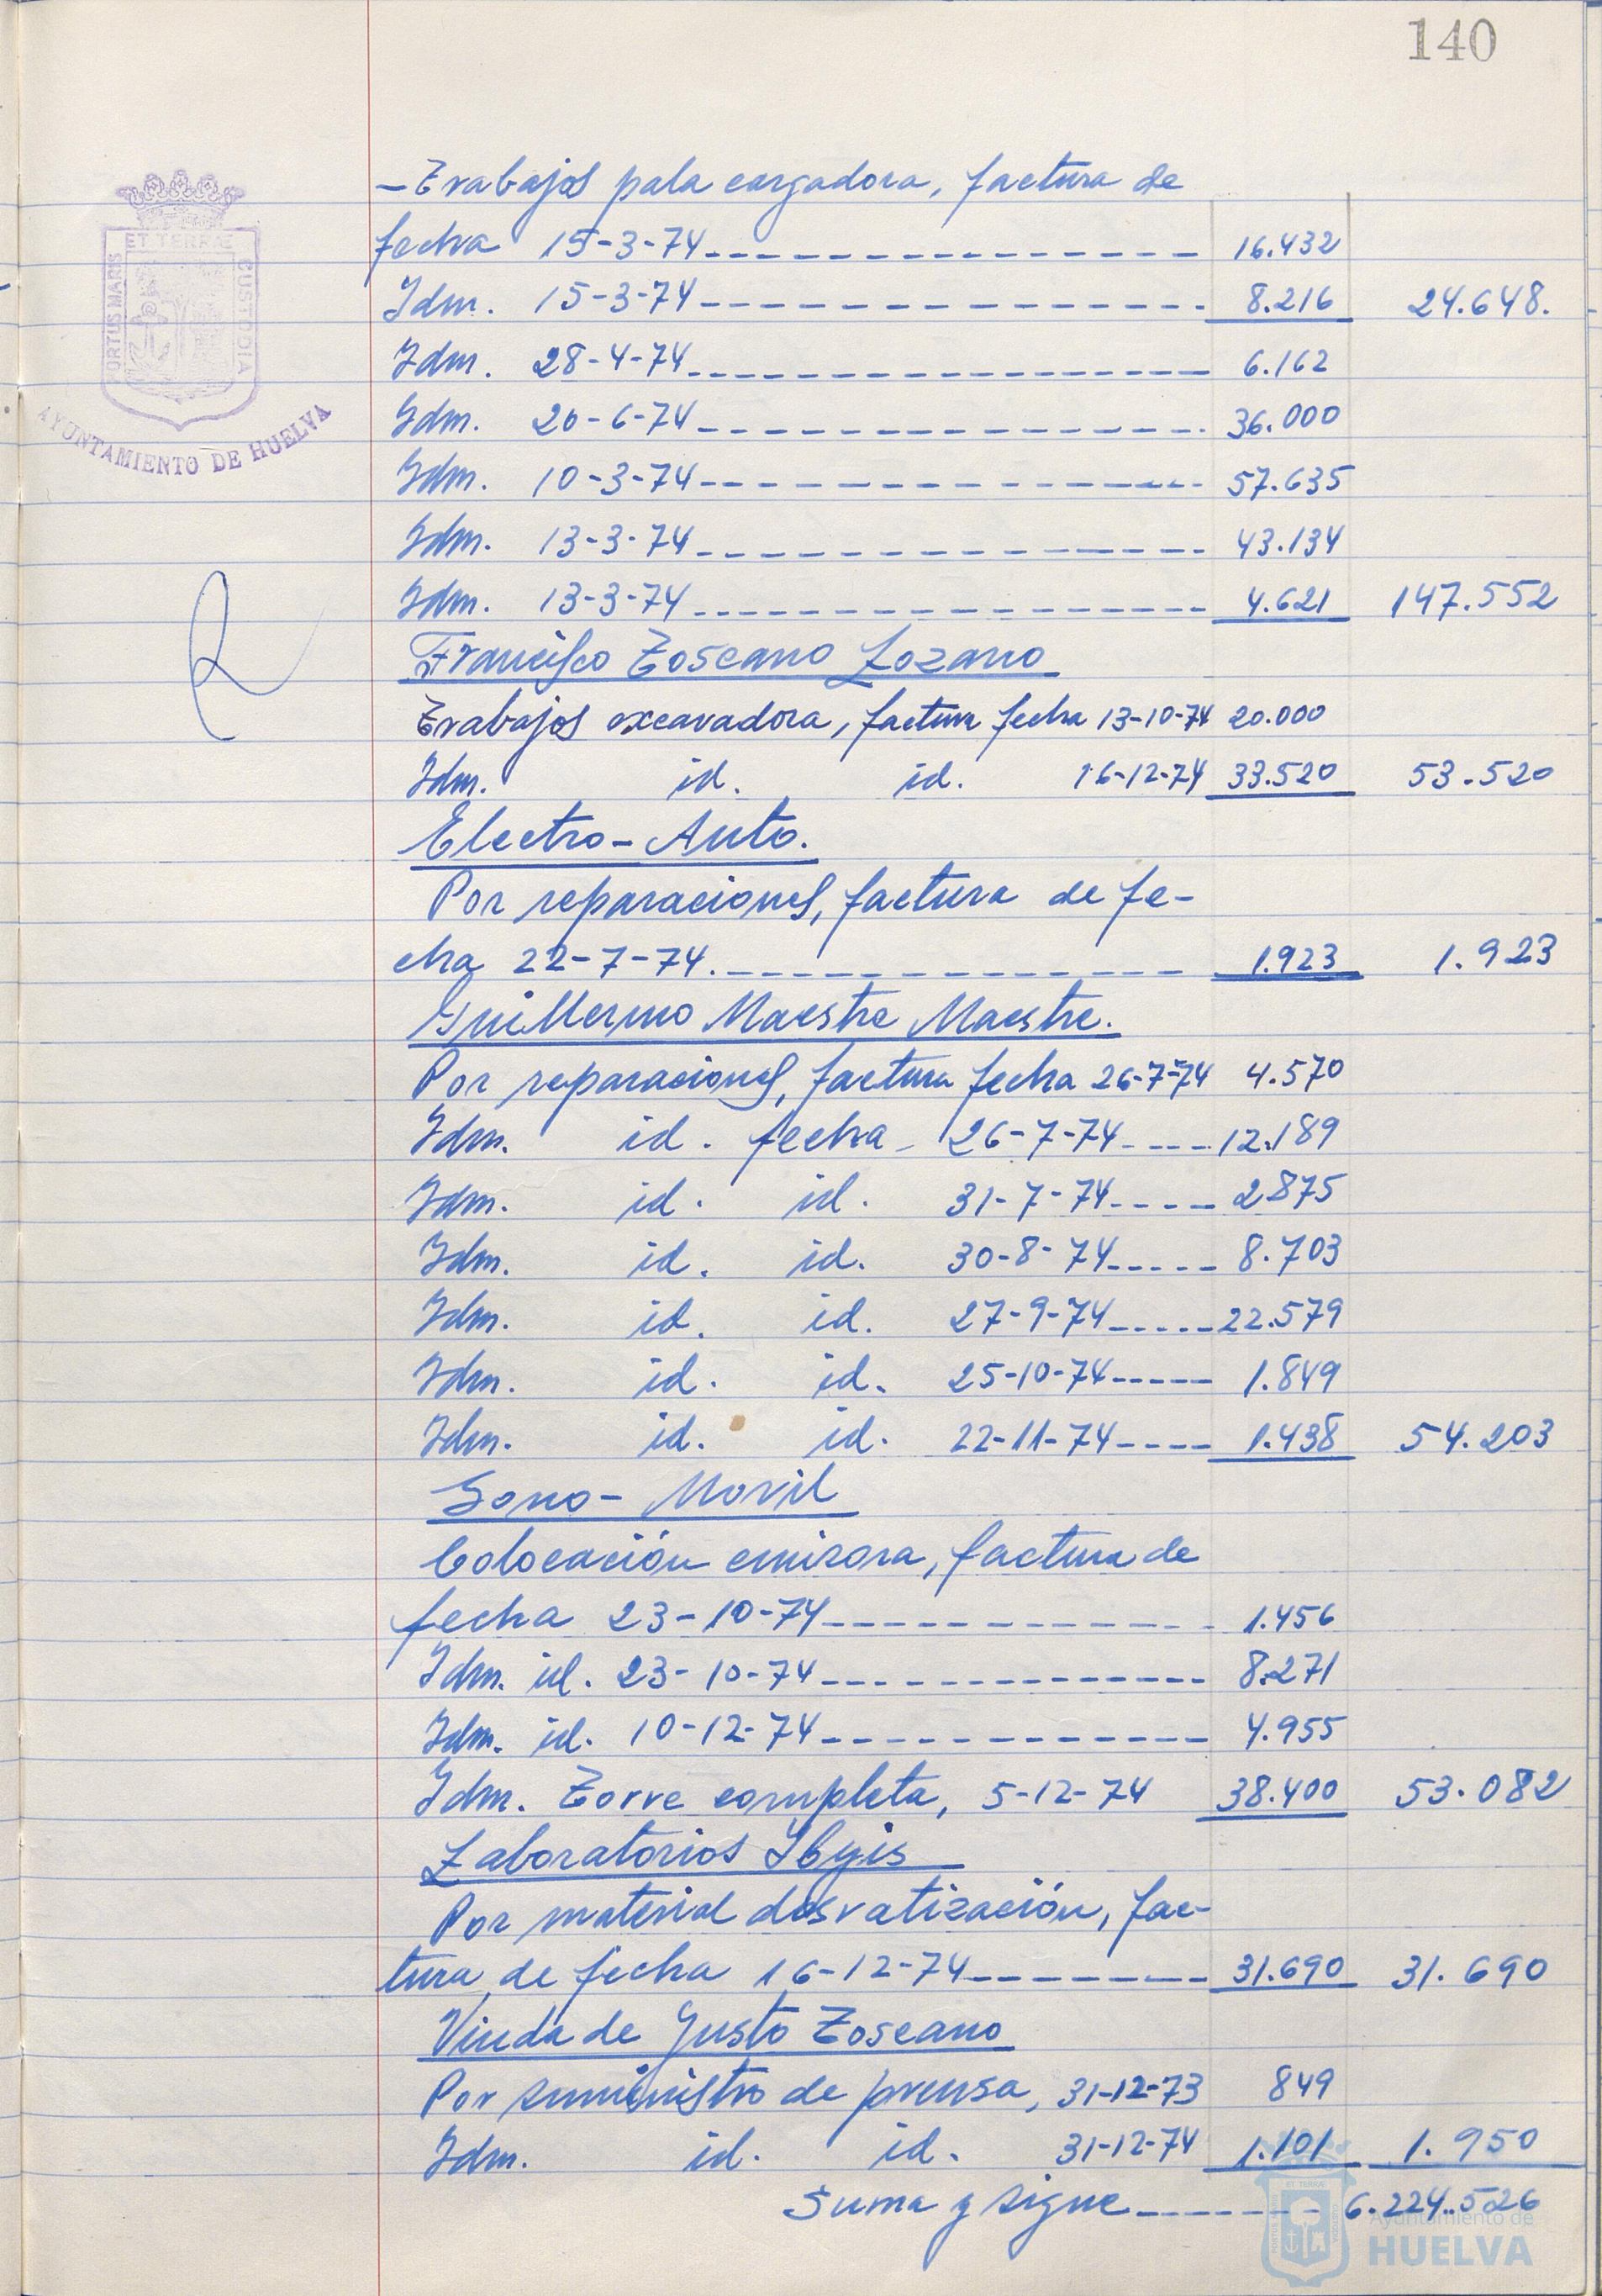 140
- Trabajos pala cargadora, factura de
fecha 15-3-74 --------------- 16.432
Idm. 15-3-74 --------------- 8.216 24.648.
Idm. 28-4-74 --------------- 6.162
Idm. 20-6-74 --------------- 36.000
Idm. 10-3-74 --------------- 57.635
Idm. 13-3-74 --------------- 43.134
Idm. 13-3-74 --------------- 4.621 147.552
Francisco Toscano Lozano
Trabajos excavadora, factura fecha 13-10-74 20.000
Idm. id. id. 16-12-74 33.520 53.520
Electro-Auto.
Por reparaciones, factura de fe-
cha 22-7-74. --------------- 1.923 1.923
Guillermo Maestre Maestre.
Por reparaciones, factura fecha 26-7-74 4.570
Idm. id. fecha 26-7-74 ---- 12.189
Idm. id. id. 31-7-74 ---- 2875
Idm. id. id. 30-8-74 ----- 8.703
Idm. id. id. 27-9-74 ----- 22.579
Idm. id. id. 25-10-74 ----- 1.849
Idm. id. id. 22-11-74 ---- 1.438 54.203
Sono-Movil
Colocación emisora, factura de
fecha 23-10-74 ------------ 1.456
Idm. id. 23-10-74 ------------- 8.271
Idm. id. 10-12-74 ------------- 4.955
Idm. Torre completa, 5-12-74 38.400 53.082
Laboratorios Ibyis
Por material desratización, fac-
tura de fecha 16-12-74 -------- 31.690 31.690
Viuda de Justo Toscano
Por suministro de prensa, 31-12-73 849
Idm. id. id. 31-12-74 1.101 1.950
Suma y sigue -------- 6.224.526
PORTUS MARIS
ET TERRÆ
CUSTODIA
AYUNTAMIENTO DE HUELVA
Ayuntamiento de
HUELVA